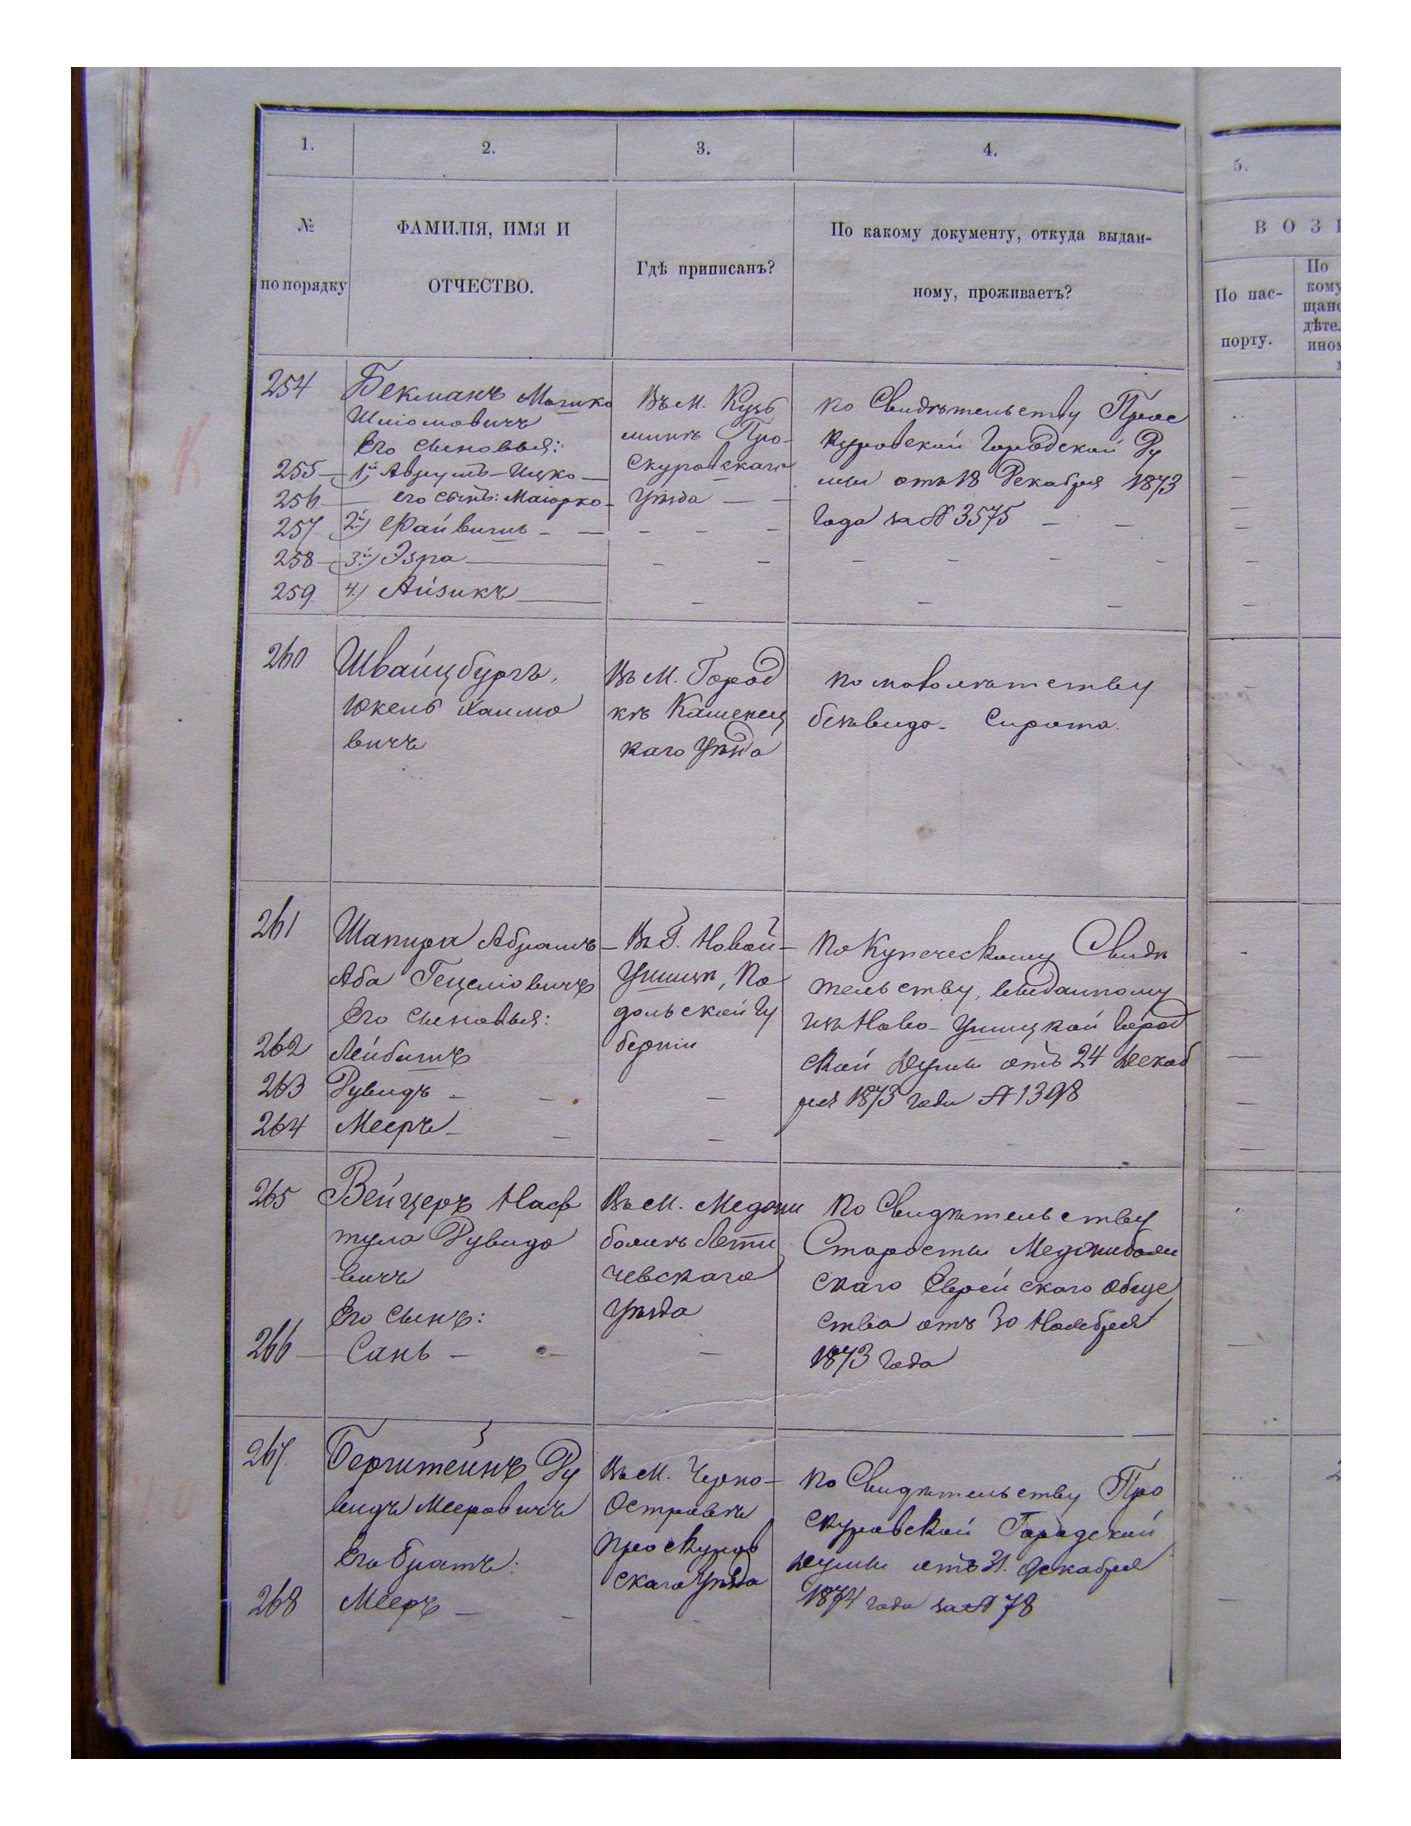 1. 2. 3. 4. 5.
№ по порядку
ФАМИЛІЯ, ИМЯ И
ОТЧЕСТВО.
Гдѣ приписанъ?
По какому документу, откуда выдан-
ному, проживаетъ?
В О З
По пас-
порту.
По
кому
щанс
дѣте
254 Бекманъ Мошко
Шліомовичъ
Его сыновья:
255 1й Аврумъ-Ицко
256 его сынъ: Маіорко
257 2й Файвишъ
258 3й Эзра
259 4) Айзикъ
Въ м. Кузь
минѣ Про-
скуровскаго
уѣзда
по Свидѣтельству Прос
куровской Городской Ду
мы отъ 18 Декабря 1873
года за № 3575
260 Швайцбургъ,
Юкель Хаимо
вичъ
Въ м. Город
кѣ Каменец
каго уѣзда
по маволѣтству
безвидо- Сирота.
261 Шапира Абрамъ
Аба Гецеліовичъ
Его сыновья:
262 Лейбишъ
263 Дувидъ
264 Мееръ
Въ Г. Новой-
Ушицѣ, По
дольской Гу
берніи
по Купеческому Свидѣ
тельству, выданному
изъ Ново-Ушицкой Город
ской Думы отъ 24 Декаб
ря 1873 года № 1398
265 Вейцеръ Наф
тула Дувидо
вичъ
Его сынъ:
266 Сань
Въ м. Меджи
божѣ Лети
чевскаго
уѣзда
по Свидѣтельству
Старосты Меджибожи
скаго Еврейскаго Обще
ства отъ 30 Ноября
1873 года
267 Бергштейнъ Ду
видъ Мееровичъ
Его братъ:
268 Мееръ
Въ м. Черно-
Островѣ
Проскуров
скаго уѣзда
по Свидѣтельству Про
скуровской Городской
Думы отъ 31. Декабря
1874 года за № 78